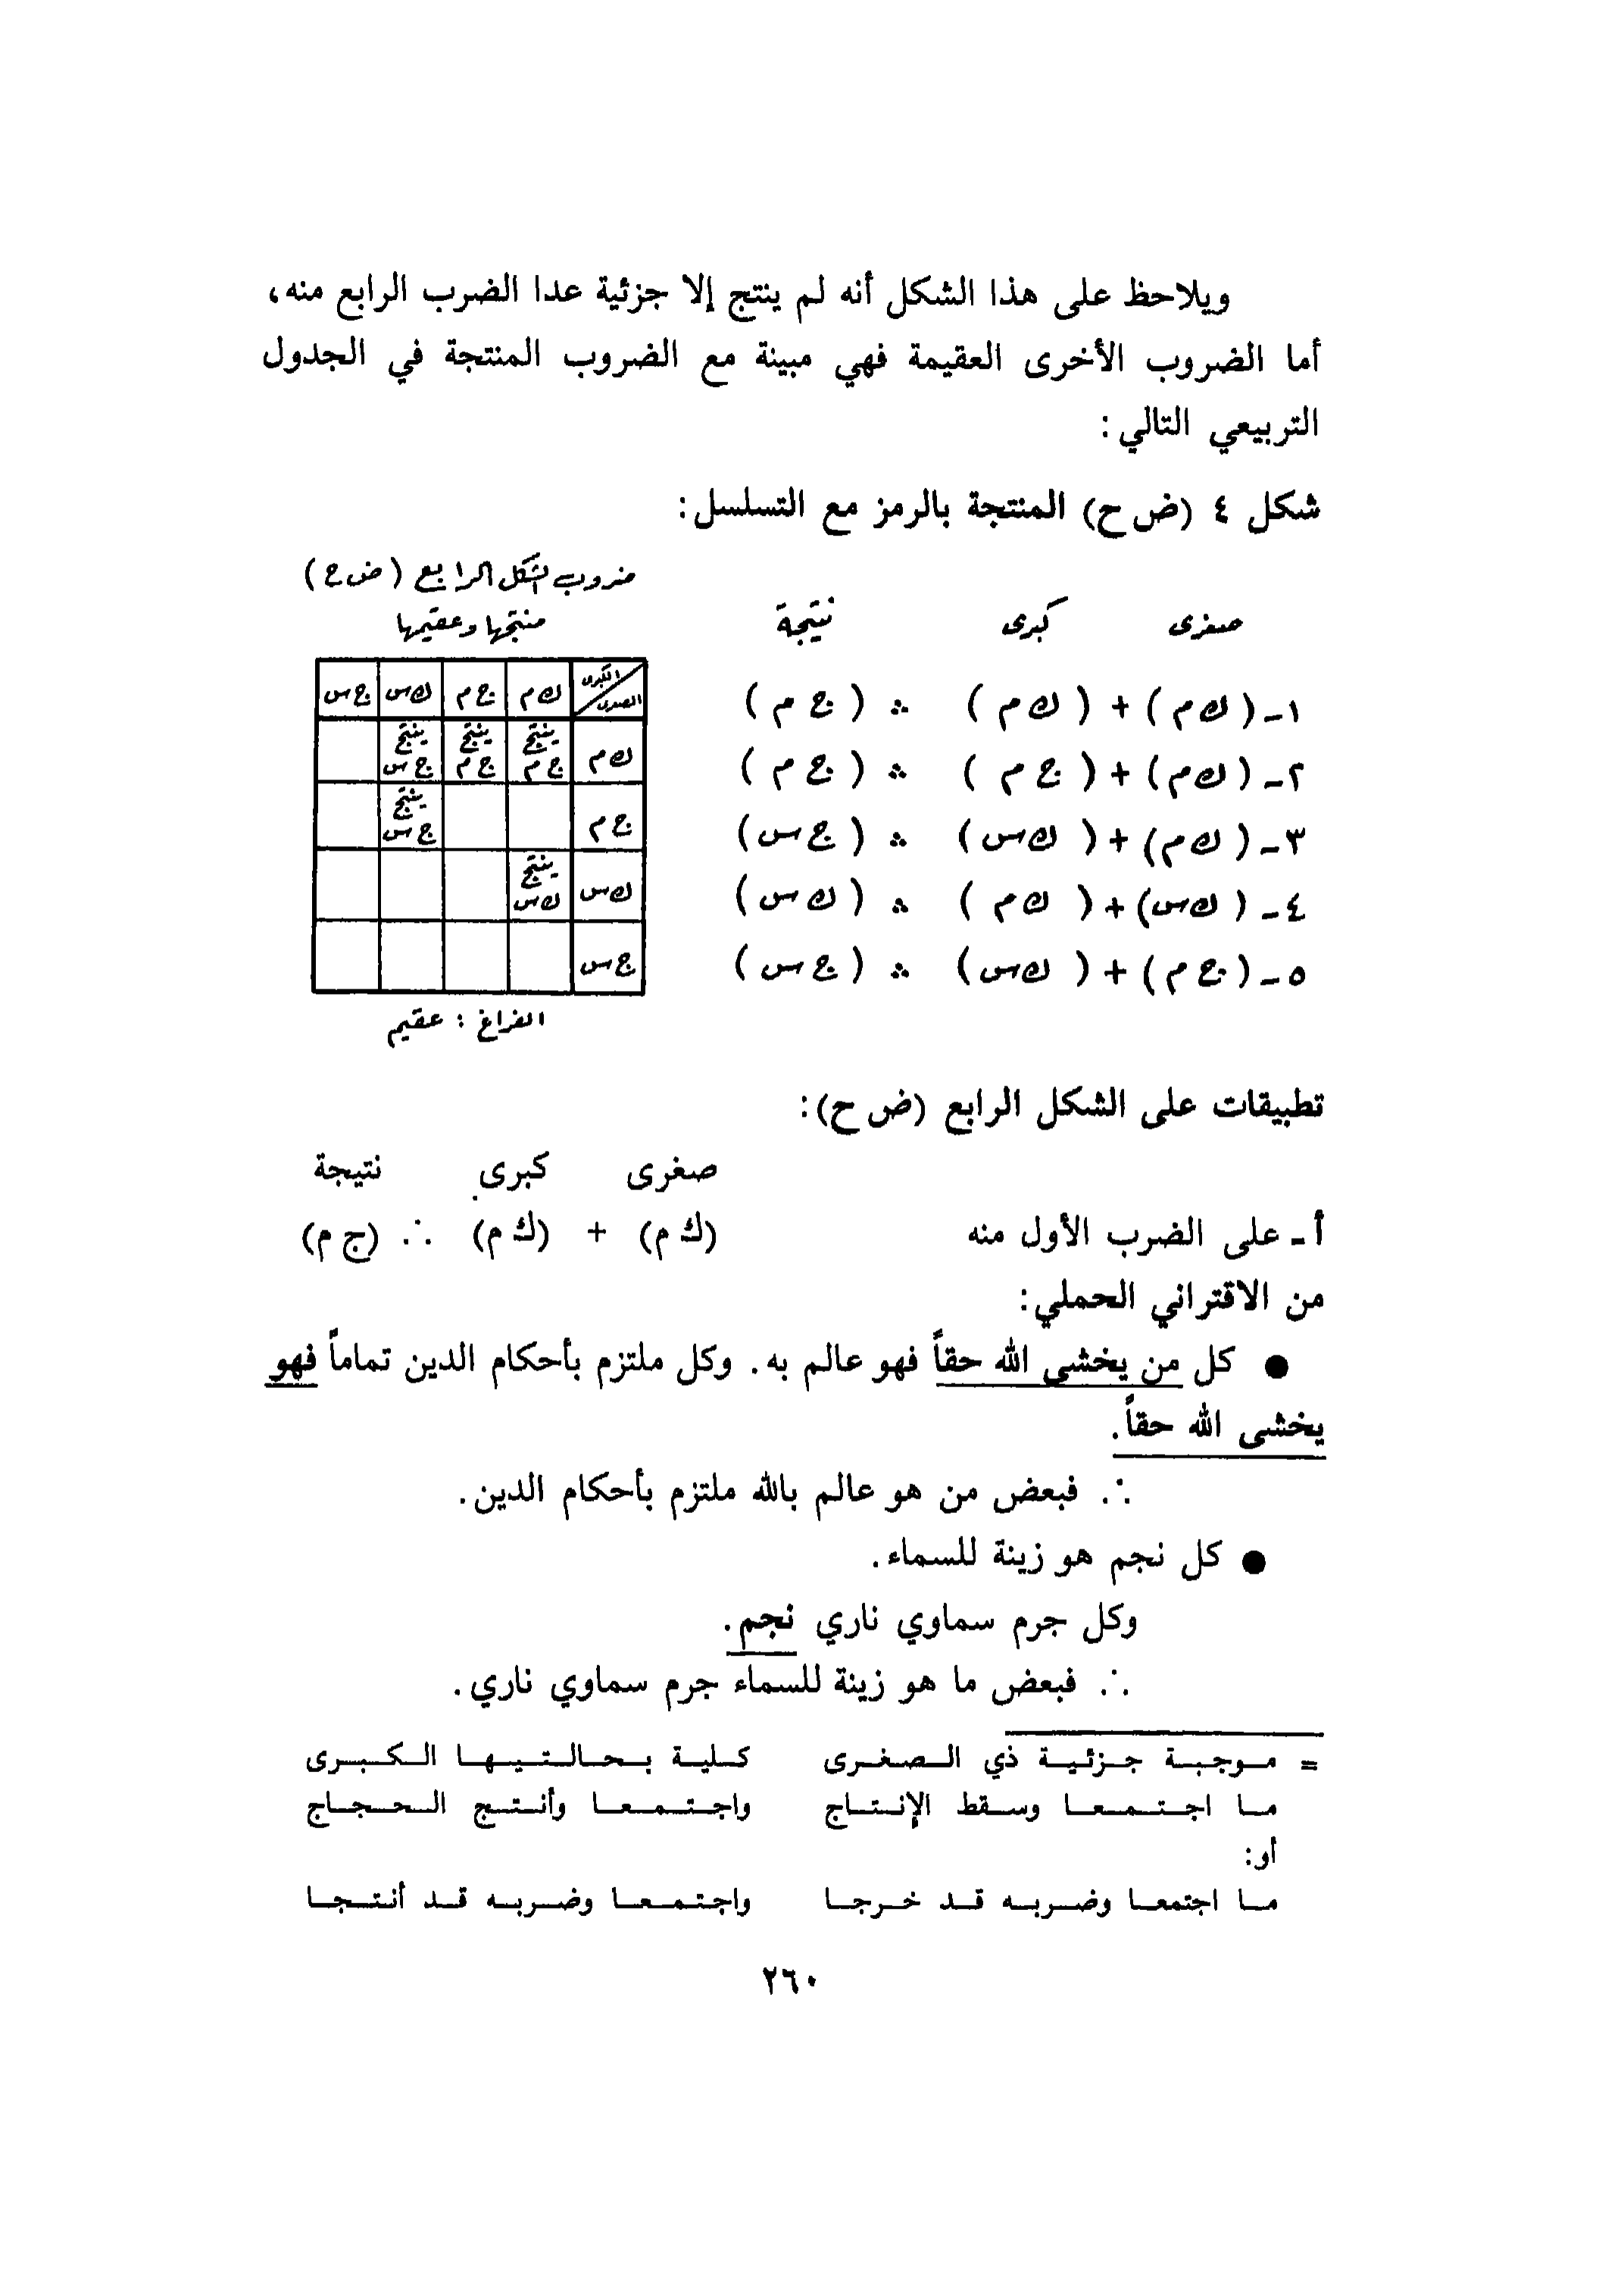 ويلاحظ على هذا الشكل أنه لم ينتج إلا جزئية عدا الضرب الرابع منه،
أما الضروب الأخرى العقيمة فهي مبينة مع الضروب المنتجة في الجدول
التربيعي التالي:
شكل ٤ (ض ح) المنتجة بالرمز مع التسلسل:
صغرى كبرى نتيجة
١ـ (ك م) + (ك م) ∴ (ج م)
٢ـ (ك م) + (ج م) ∴ (ج م)
٣ـ (ك م) + (ك س) ∴ (ج س)
٤ـ (ك س) + (ك م) ∴ (ك س)
٥ـ (ج م) + (ك س) ∴ (ج س)
ضروب الشكل الرابع (ض ح)
منتجها وعقيمها
الكبرى
الصغرى
ك م ج م ك س ج س
ك م ينتج ج م ينتج ج م ينتج ج س
ج م ينتج ج س
ك س ينتج ك س
ج س
الفراغ : عقيم
تطبيقات على الشكل الرابع (ض ح):
صغرى كبرى نتيجة
أ ـ على الضرب الأول منه (ك م) + (ك م) ∴ (ج م)
من الاقتراني الحملي:
● كل من يخشى الله حقاً فهو عالم به. وكل ملتزم بأحكام الدين تماماً فهو
يخشى الله حقاً.
∴ فبعض من هو عالم بالله ملتزم بأحكام الدين.
● كل نجم هو زينة للسماء.
وكل جرم سماوي ناري نجم.
∴ فبعض ما هو زينة للسماء جرم سماوي ناري.
= مـوجبـة جـزئيـة ذي الـصغـرى كـليـة بـحـالـتـيـهـا الـكـبـرى
مـا اجـتـمـعـا وسـقط الإنـتـاج واجـتـمـعـا وأنـتـج الـحـجـاج
أو:
مـا اجتمعـا وضـربـه قـد خـرجـا واجـتـمـعـا وضـربـه قـد أنـتـجـا
٢٦٠